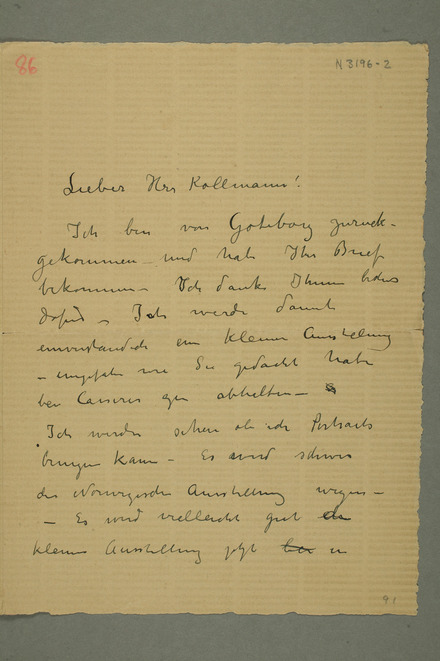 86
N 3196-2
Lieber Herr Kollmann!
Ich bin von Goteborg zurück-
gekommen – und hab Ihr Brief
bekommen – Ich danke Ihnen
dafür – Ich werde damit
ein kleine Ausstellung
– ungefähr wie Sie gedacht habe
bei Cassirer abhalten –
Ich werde sehen ob ich Portraits
bringen kann – Es wird schwer
der Norwegische Ausstellung wegen –
– Es wird vielleicht gut
kleine Ausstellung jetzt in
91